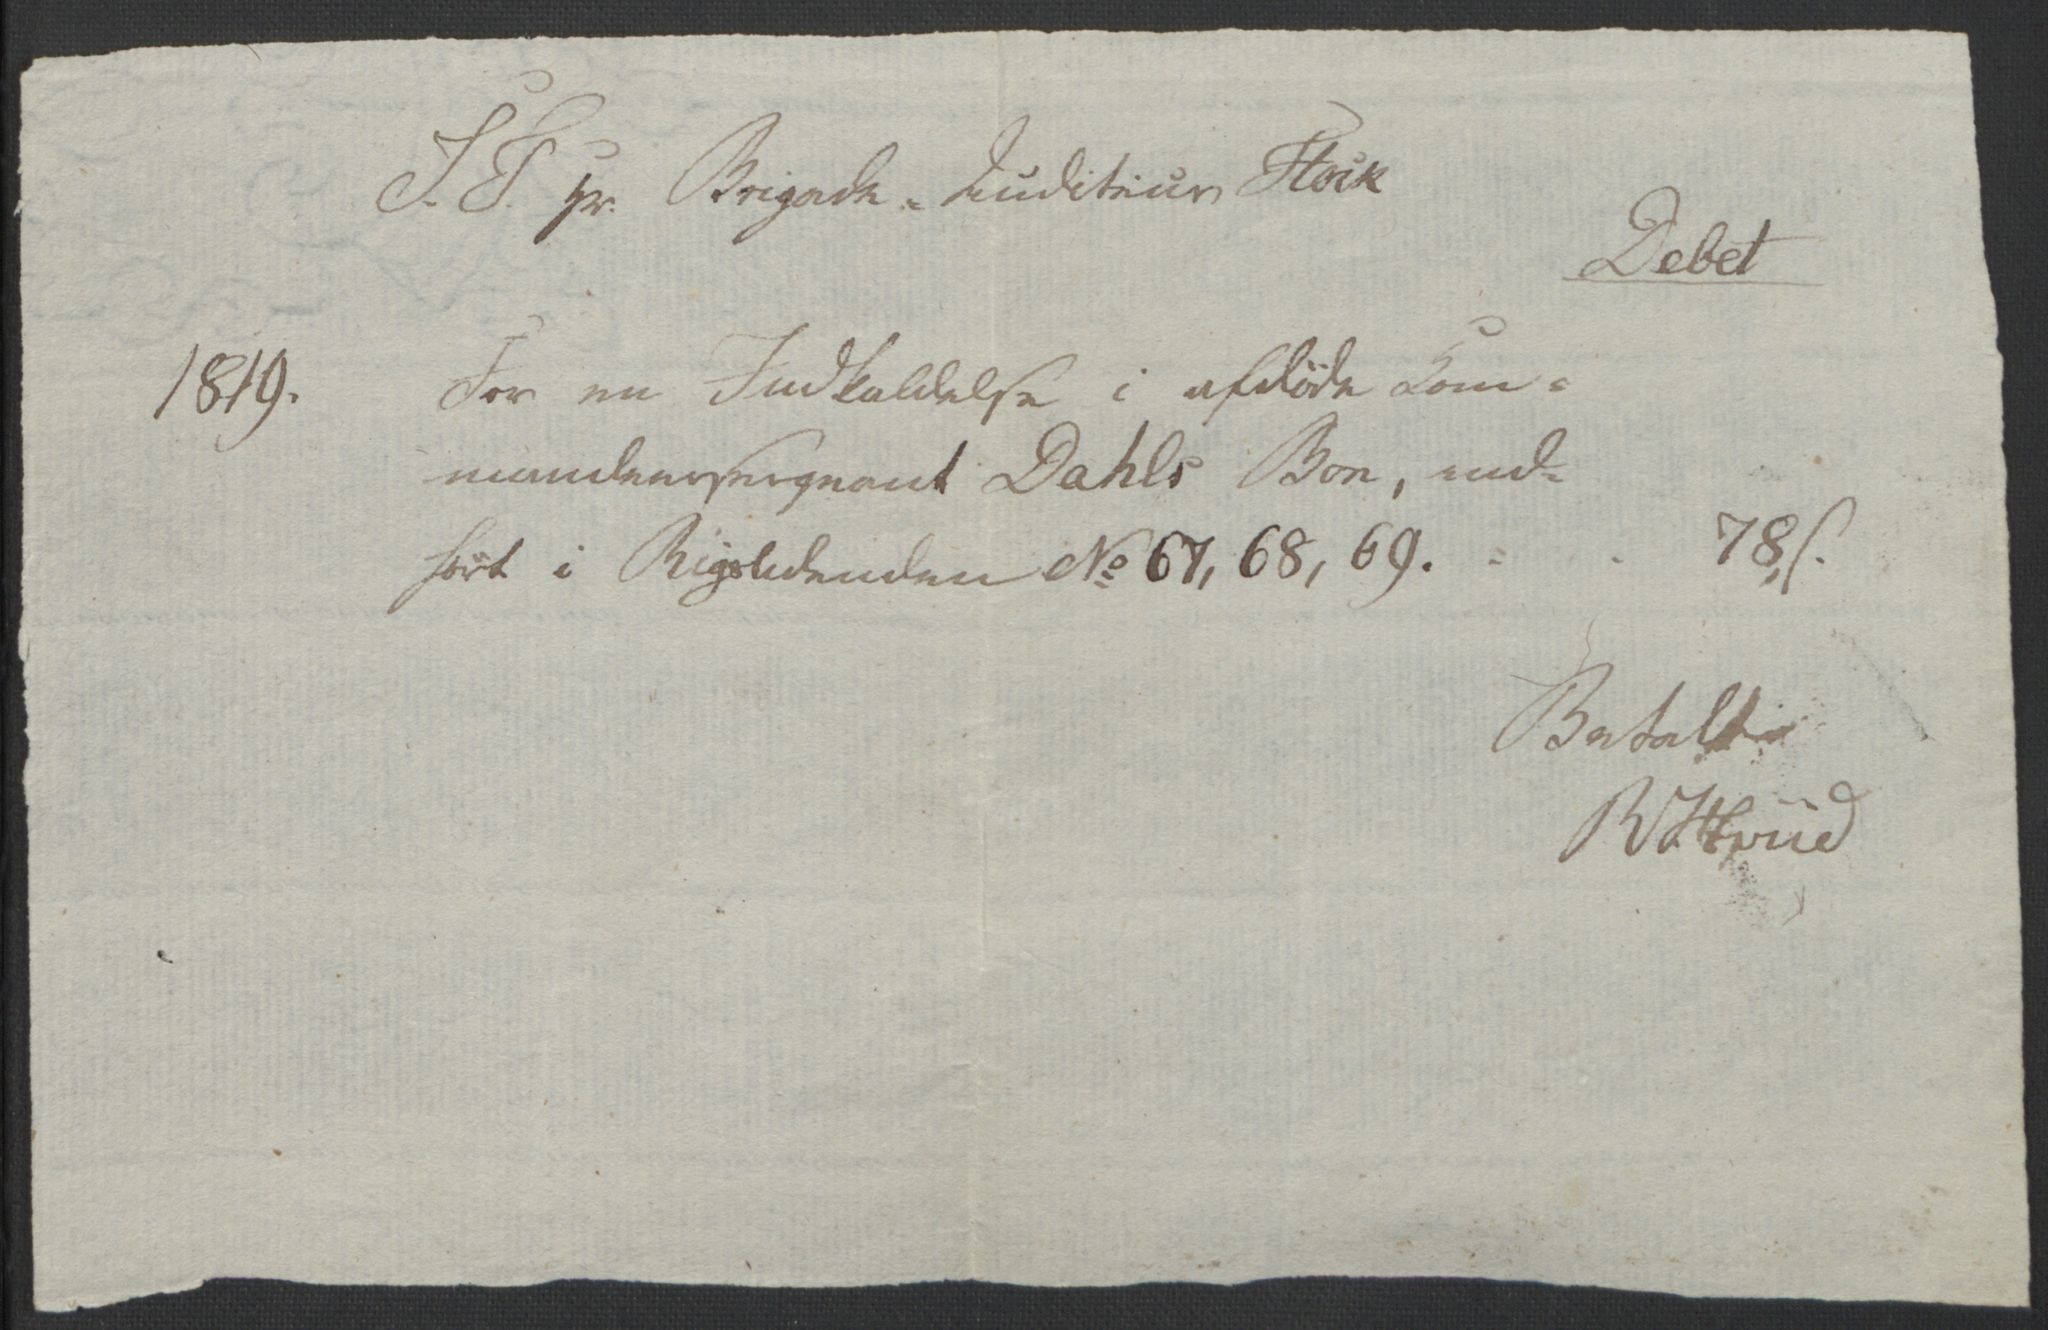 S. T. Hr. Brigade-Auditeur Flock
Debet
1819. For en Indkaldelse i afdöde Kom-
mandeersergeant Dahls Boe, ind-
fört i Rigstidenden No 67, 68, 69. - - 78 s.
Betalt
R Hviid